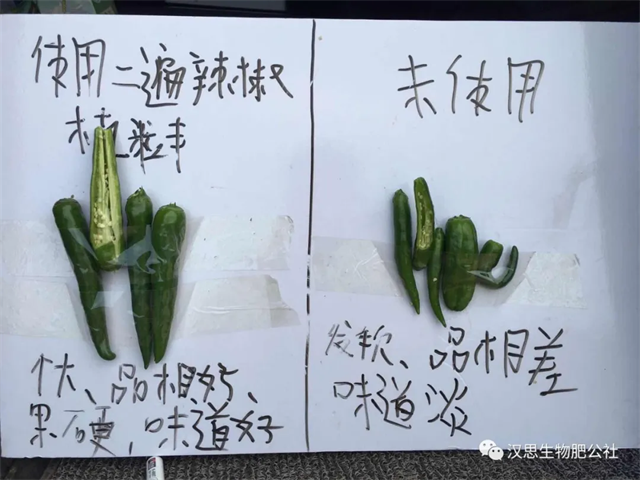 使用二遍辣椒
植粒丰
个大、品相好、
果硬，味道好
未使用
发软、品相差
味道淡
汉思生物肥公社